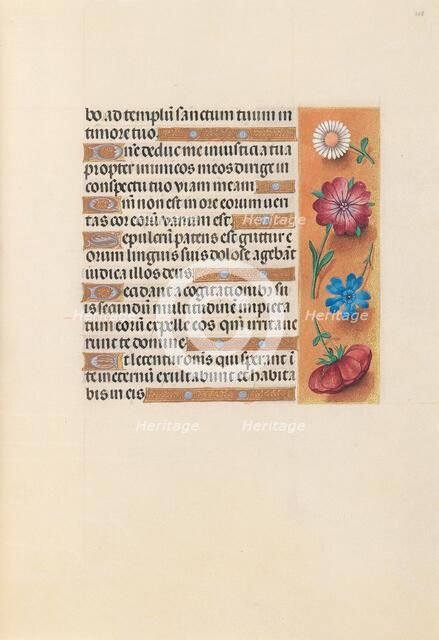 bo ad templũ sanctum tuum in
timore tuo.
Dñe deduc me in iusticia tua
propter inimicos meos dirige in
conspectu tuo viam meam.
Qm̃ non est in ore eorum ueri
tas cor eorũ vanum est.
Sepulcrũ patens est guttur e
orum linguis suis dolose agebãt
iudica illos deus.
Decidant a cogitationibꝰ su
is secundũ multitudinẽ impieta
tum eorũ expelle eos qm̃ irritaue
runt te domine.
Et letentur oñis qui sperant ĩ
te in eternũ exultabunt et habita
bis in eis
Heritage
Heritage
Heritage
Heritage
Heritage
Heritage